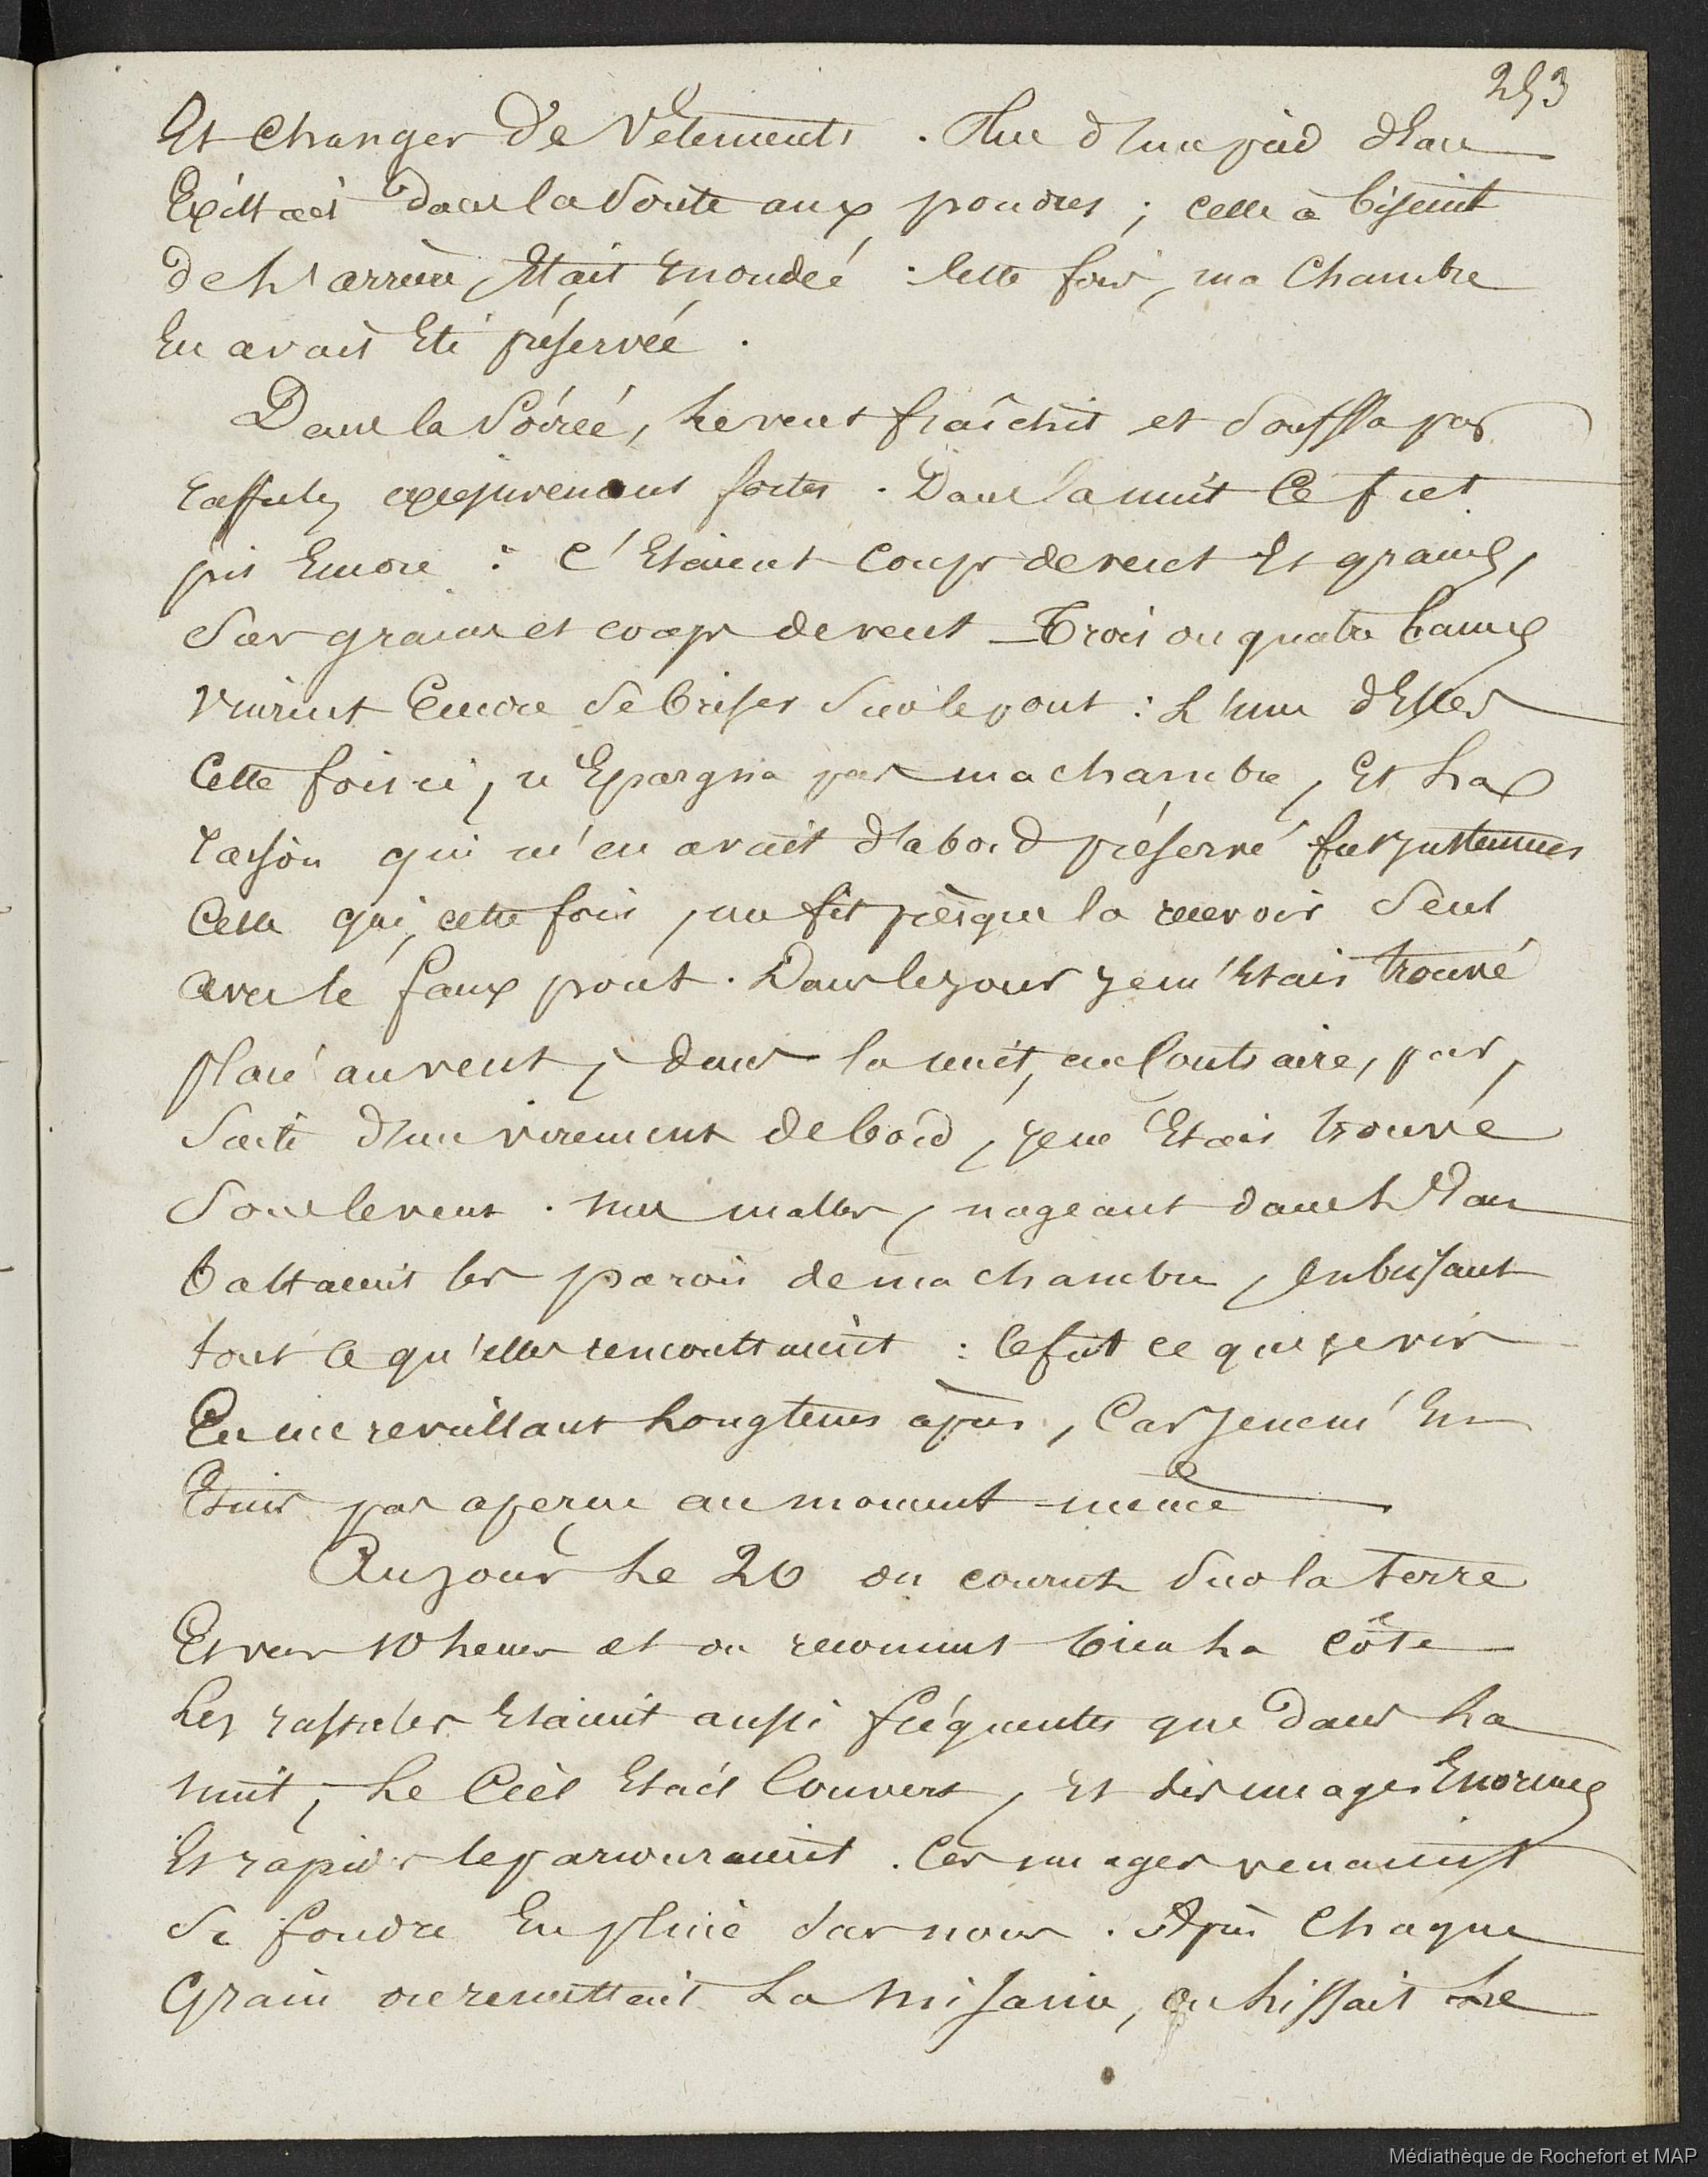 253
Et changer de vêtements. Plus d'un pied d'eau
Existait dans la soute aux poudres ; celle à biscuit
de l'arrière, était inondée : cette fois, ma chambre
En avait été préservée.
Dans la soirée, le vent fraîchit et souffla par
raffales excessivement fortes. Dans la nuit ce fut
pis encore : c'étaient coups de vent et grains,
sur grains et coups de vent _ Trois ou quatre lames
vinrent encore se briser sur le pont : L'une d'elles
cette fois ci, n'épargna pas ma chambre, et la
raison qui m'en avait d'abord préservé fut justement
celle qui, cette fois, me fit presque la recevoir seul
avec le faux pont. Dans le jour je m'étais trouvé
placé au vent, dans la nuit, au contraire, par,
suite d'un virement de bord, je me étais trouvé
sous le vent. mes malles, nageant dans l'eau
battaient les parois de ma chambre, en brisant
tout ce qu'elles rencontraient : ce fut ce que je vis
En me réveillant longtems après, car je ne m'en
étais pas aperçu au moment même
Au jour le 26 on courut sur la terre
Et vers 10 heures et on reconnut bien la côte
Les raffales étaient aussi fréquentes que dans la
nuit, le ciel était couvert, et des nuages énormes
Et rapides le parcouraient. Ces nuages venaient
se fondre en pluie sur nous. Après chaque
Grain on remettait la misaine, on hissait le
Médiathèque de Rochefort et MAP